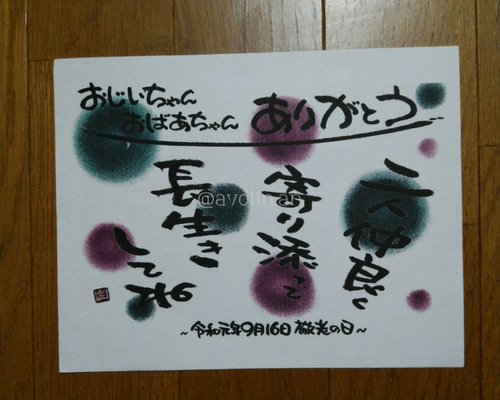 おじいちゃん
おばあちゃん
ありがとう
二人仲良く
寄り添って
長生き
してね
~令和元年9月16日 敬老の日~